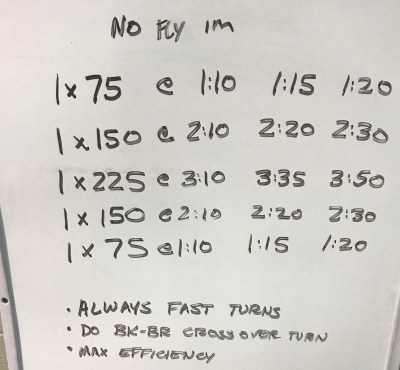 NO FLY IM
1 x 75 @ 1:10 1:15 1:20
1 x 150 @ 2:10 2:20 2:30
1 x 225 @ 3:10 3:35 3:50
1 x 150 @ 2:10 2:20 2:30
1 x 75 @ 1:10 1:15 1:20
• ALWAYS FAST TURNS
• DO BK-BR CROSSOVER TURN
• MAX EFFICIENCY